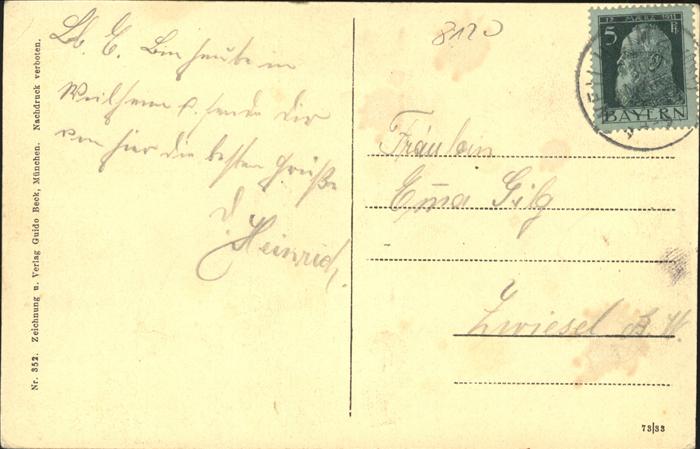 Lb. E. Bin heute in
Weilheim u. sende dir
von hier die besten Grüße
d. Heinrich
8120
17 MÄRZ 1911
5 Pf
BAYERN
Fräulein
Ema Gilg
Zwiesel B. W.
Nr. 352. Zeichnung u. Verlag Guido Beck, München. Nachdruck verboten.
73/33